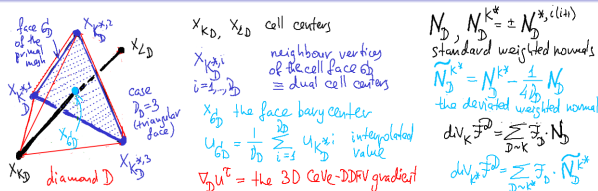 face σ_D
of the
primal
mesh
x_{K*_D,2}
x_{L_D}
x_{K*_D,1}
case
p_D=3
(triangular
face)
x_{σ_D}
x_{K_D}
x_{K*_D,3}
diamond D
x_{K_D}, x_{L_D} cell centers
x_{K*_D,i} neighbour vertices
i=1,..,p_D of the cell face σ_D
≡ dual cell centers
x_{σ_D} the face barycenter
u_{σ_D} = 1/p_D Σ_{i=1}^{p_D} u_{K*_D,i} interpolated
value
∇_D u^τ = the 3D CeVe-DDFV gradient
N_D, N_D^{K*} = ± N_D^{*,i(i+1)}
standard weighted normals
Ñ_D^{K*} = N_D^{K*} - 1/(4p_D) N_D
the deviated weighted normal
div_K F^D = Σ_{D~K} F_D · N_D
div_{K*} F^D = Σ_{D~K*} F_D · Ñ_D^{K*}